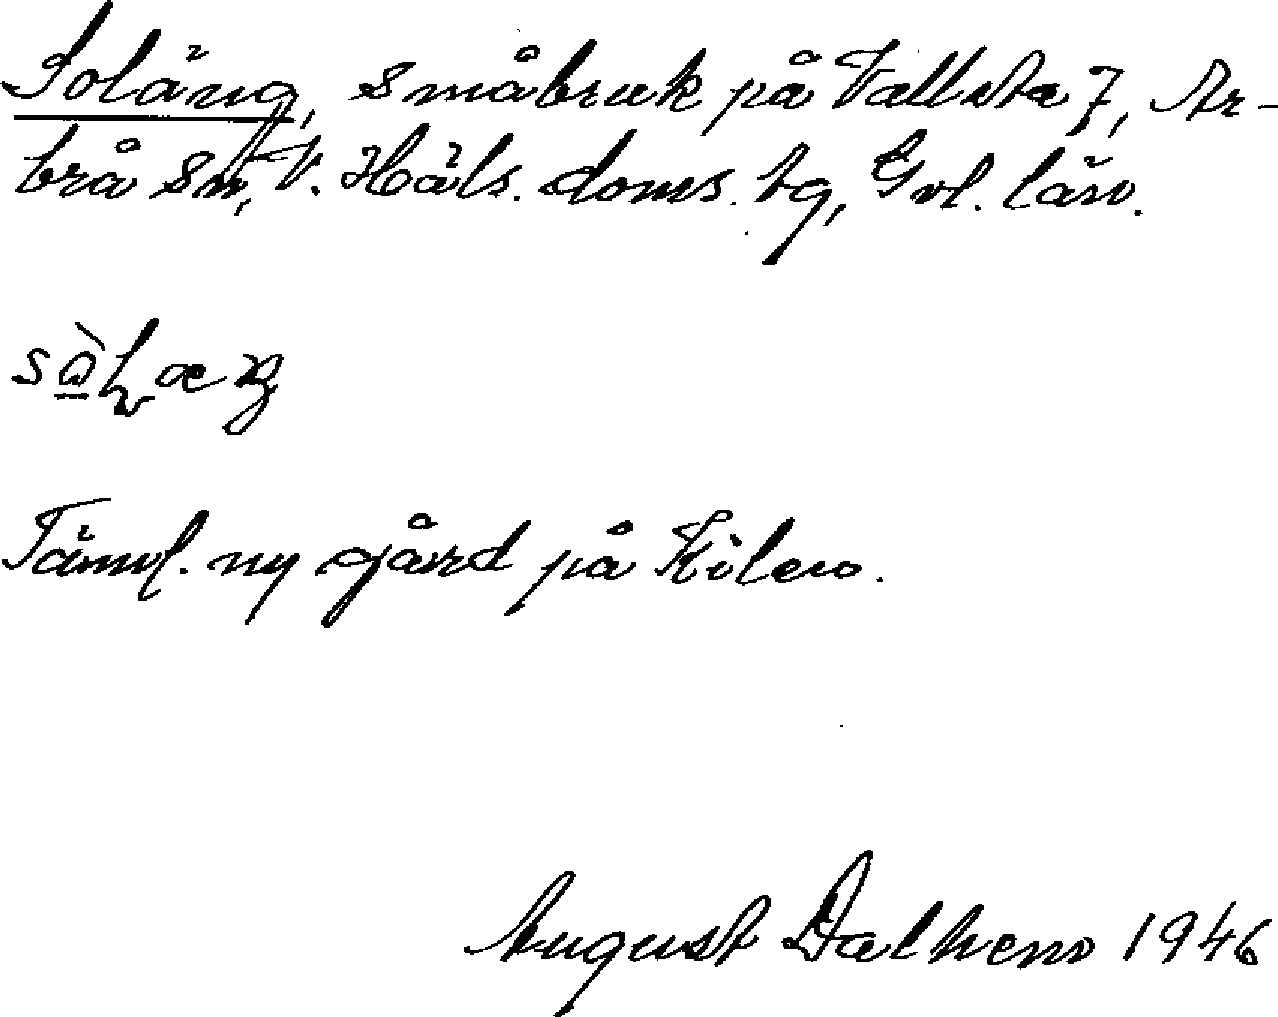 Soläng, småbruk på Vallsta 7, Ar-
brå sn, V. Häls. doms. tg, Gvl. län.
TämL. ny gård på Kilen.
August Dalhem 1946